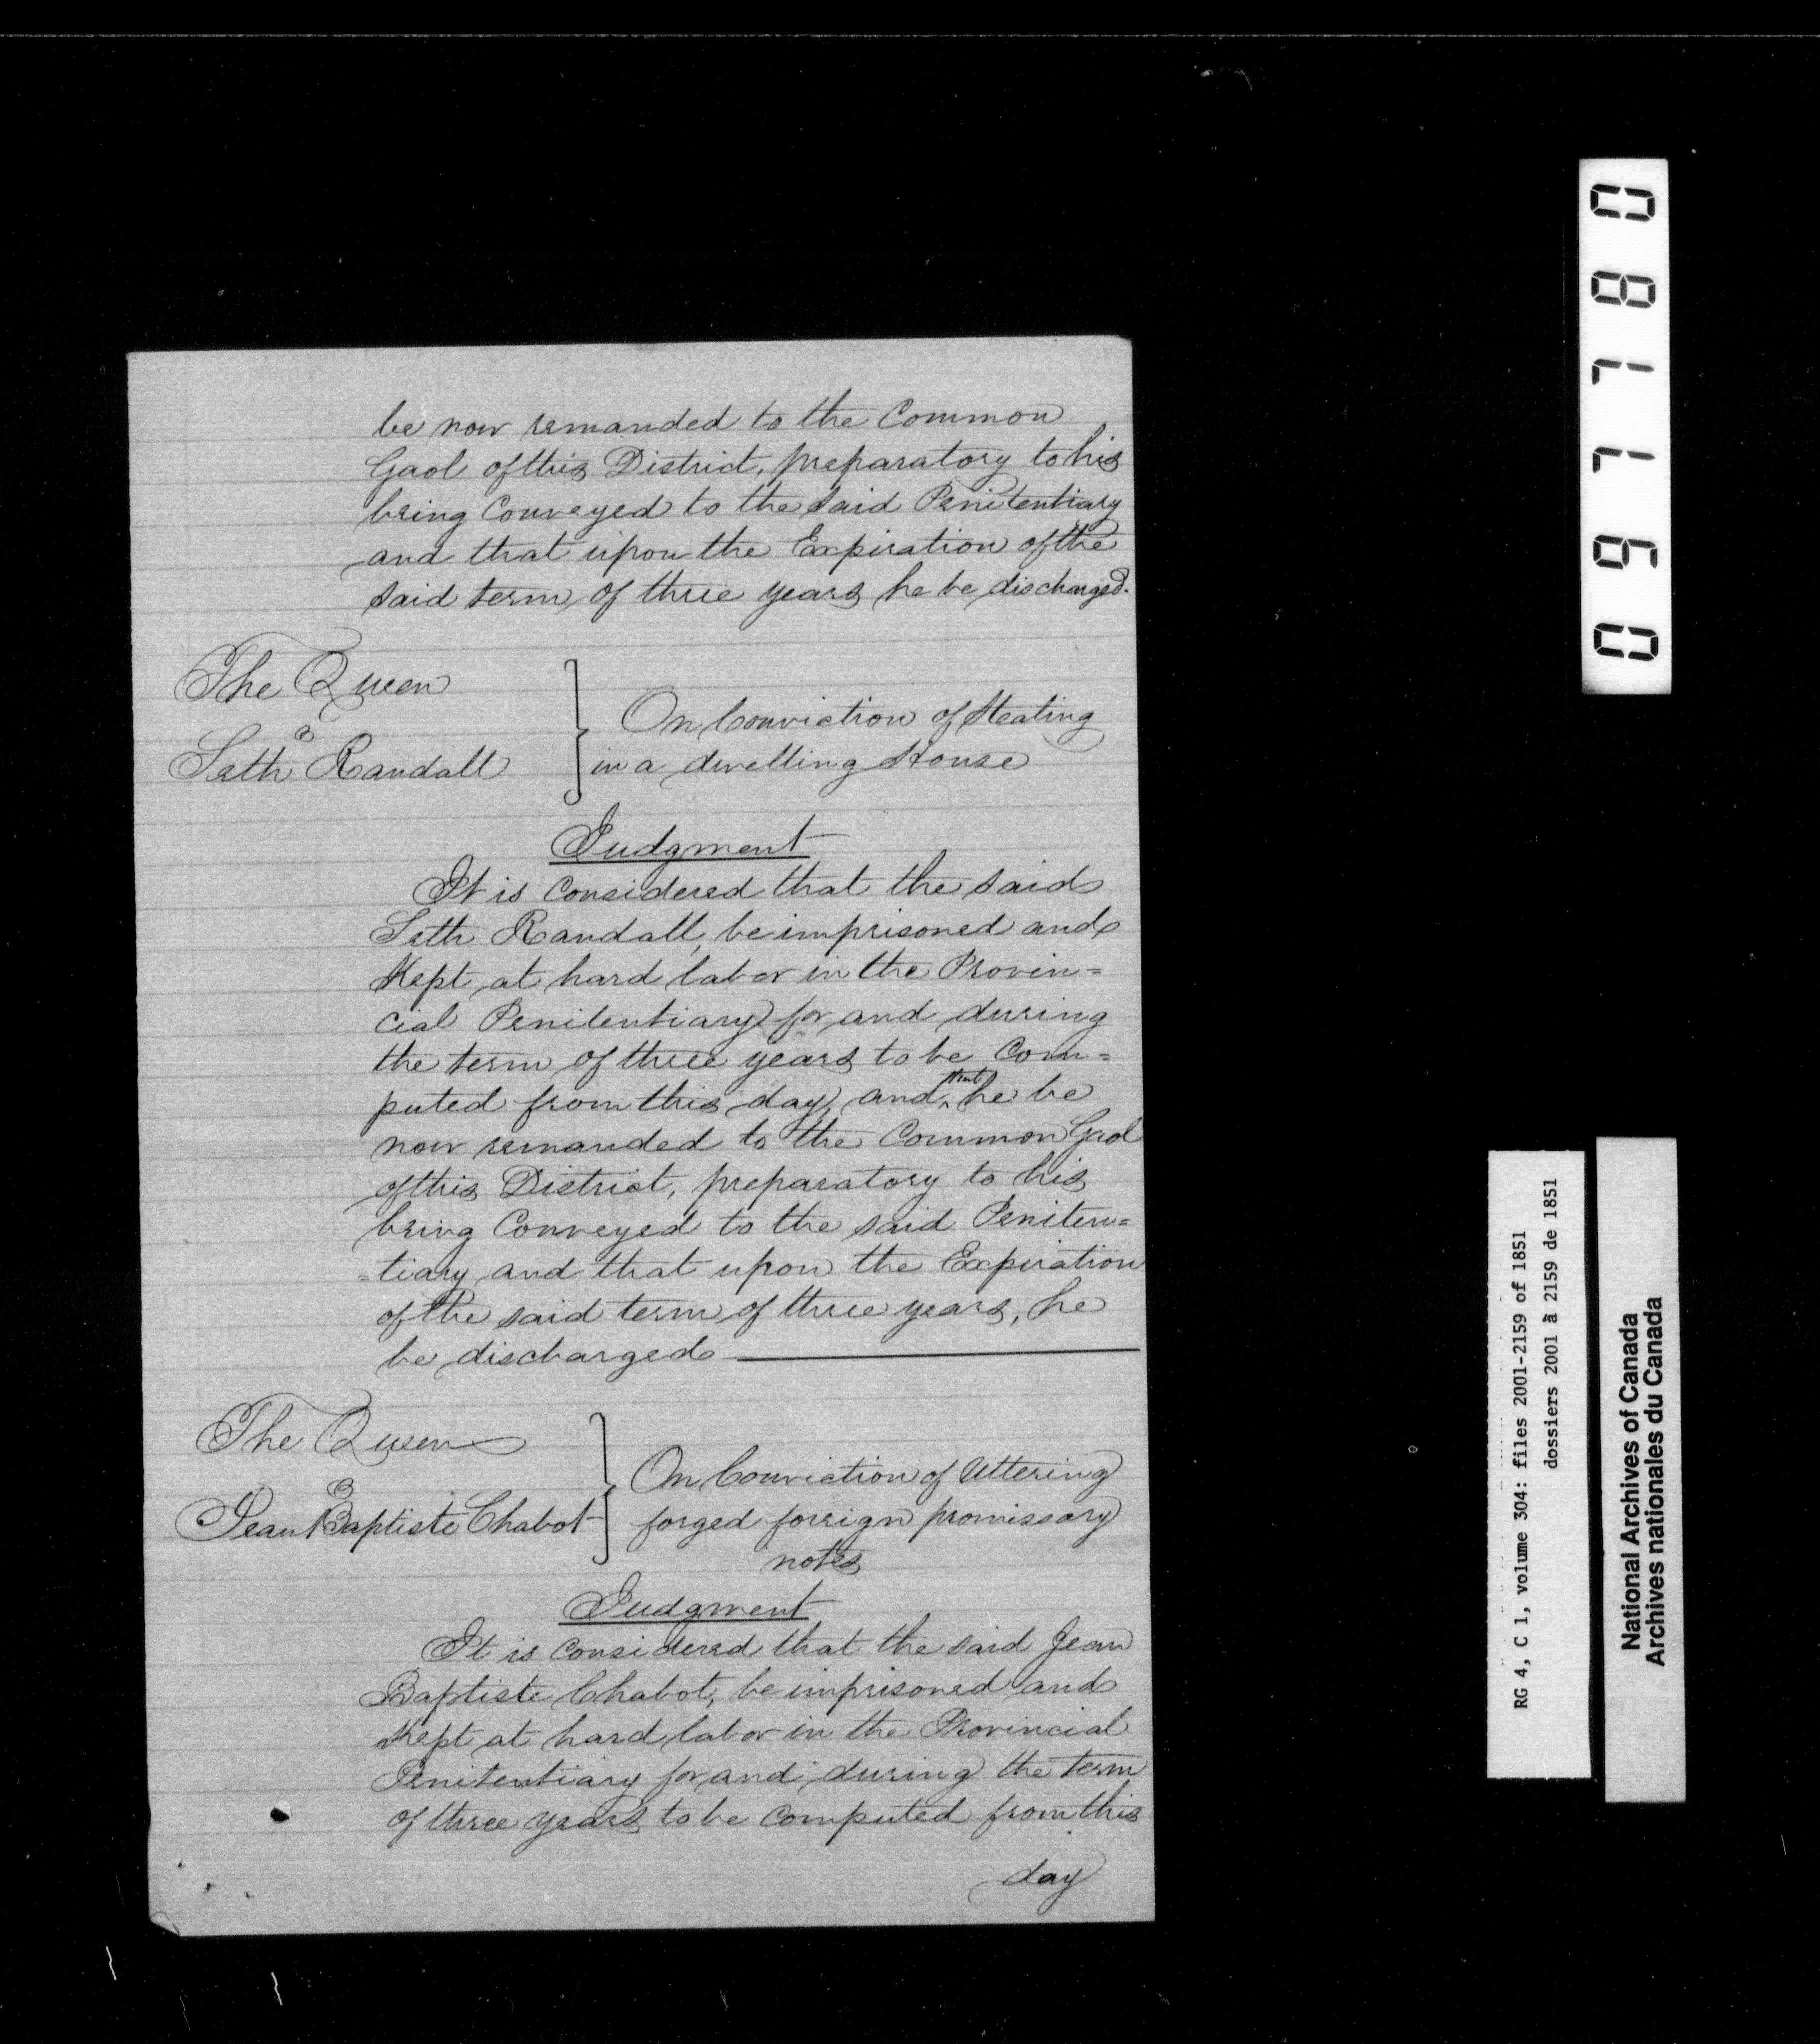 be now remanded to the Common
Gaol of this District, preparatory to his
being Conveyed to the said Penitentiary
and that upon the Expiration of the
said term of three years he be discharged.
The Queen
Seth Randall
On Conviction of Stealing
in a dwelling House
Judgment
It is Considered that the said
Seth Randall, be imprisoned and
Kept at hard labor in the Provin=
cial Penitentiary for and during
the term of three years to be Com=
puted from this day, and that he be
now remanded to the Common Gaol
of this District, preparatory to his
being Conveyed to the said Peniten=
=tiary and that upon the Expiration
of the said term of three years, he
be discharged
The Queen
Jean Baptiste Chabot
On Conviction of Uttering
forged foreign promissory
notes
Judgment
It is Considered that the said Jean
Baptiste Chabot, be imprisoned and
Kept at hard labor in the Provincial
Penitentiary for and during the term
of three years to be Computed from this
day
097780
RG 4, C 1, volume 304: files 2001-2159 of 1851
dossiers 2001 à 2159 de 1851
National Archives of Canada
Archives nationales du Canada